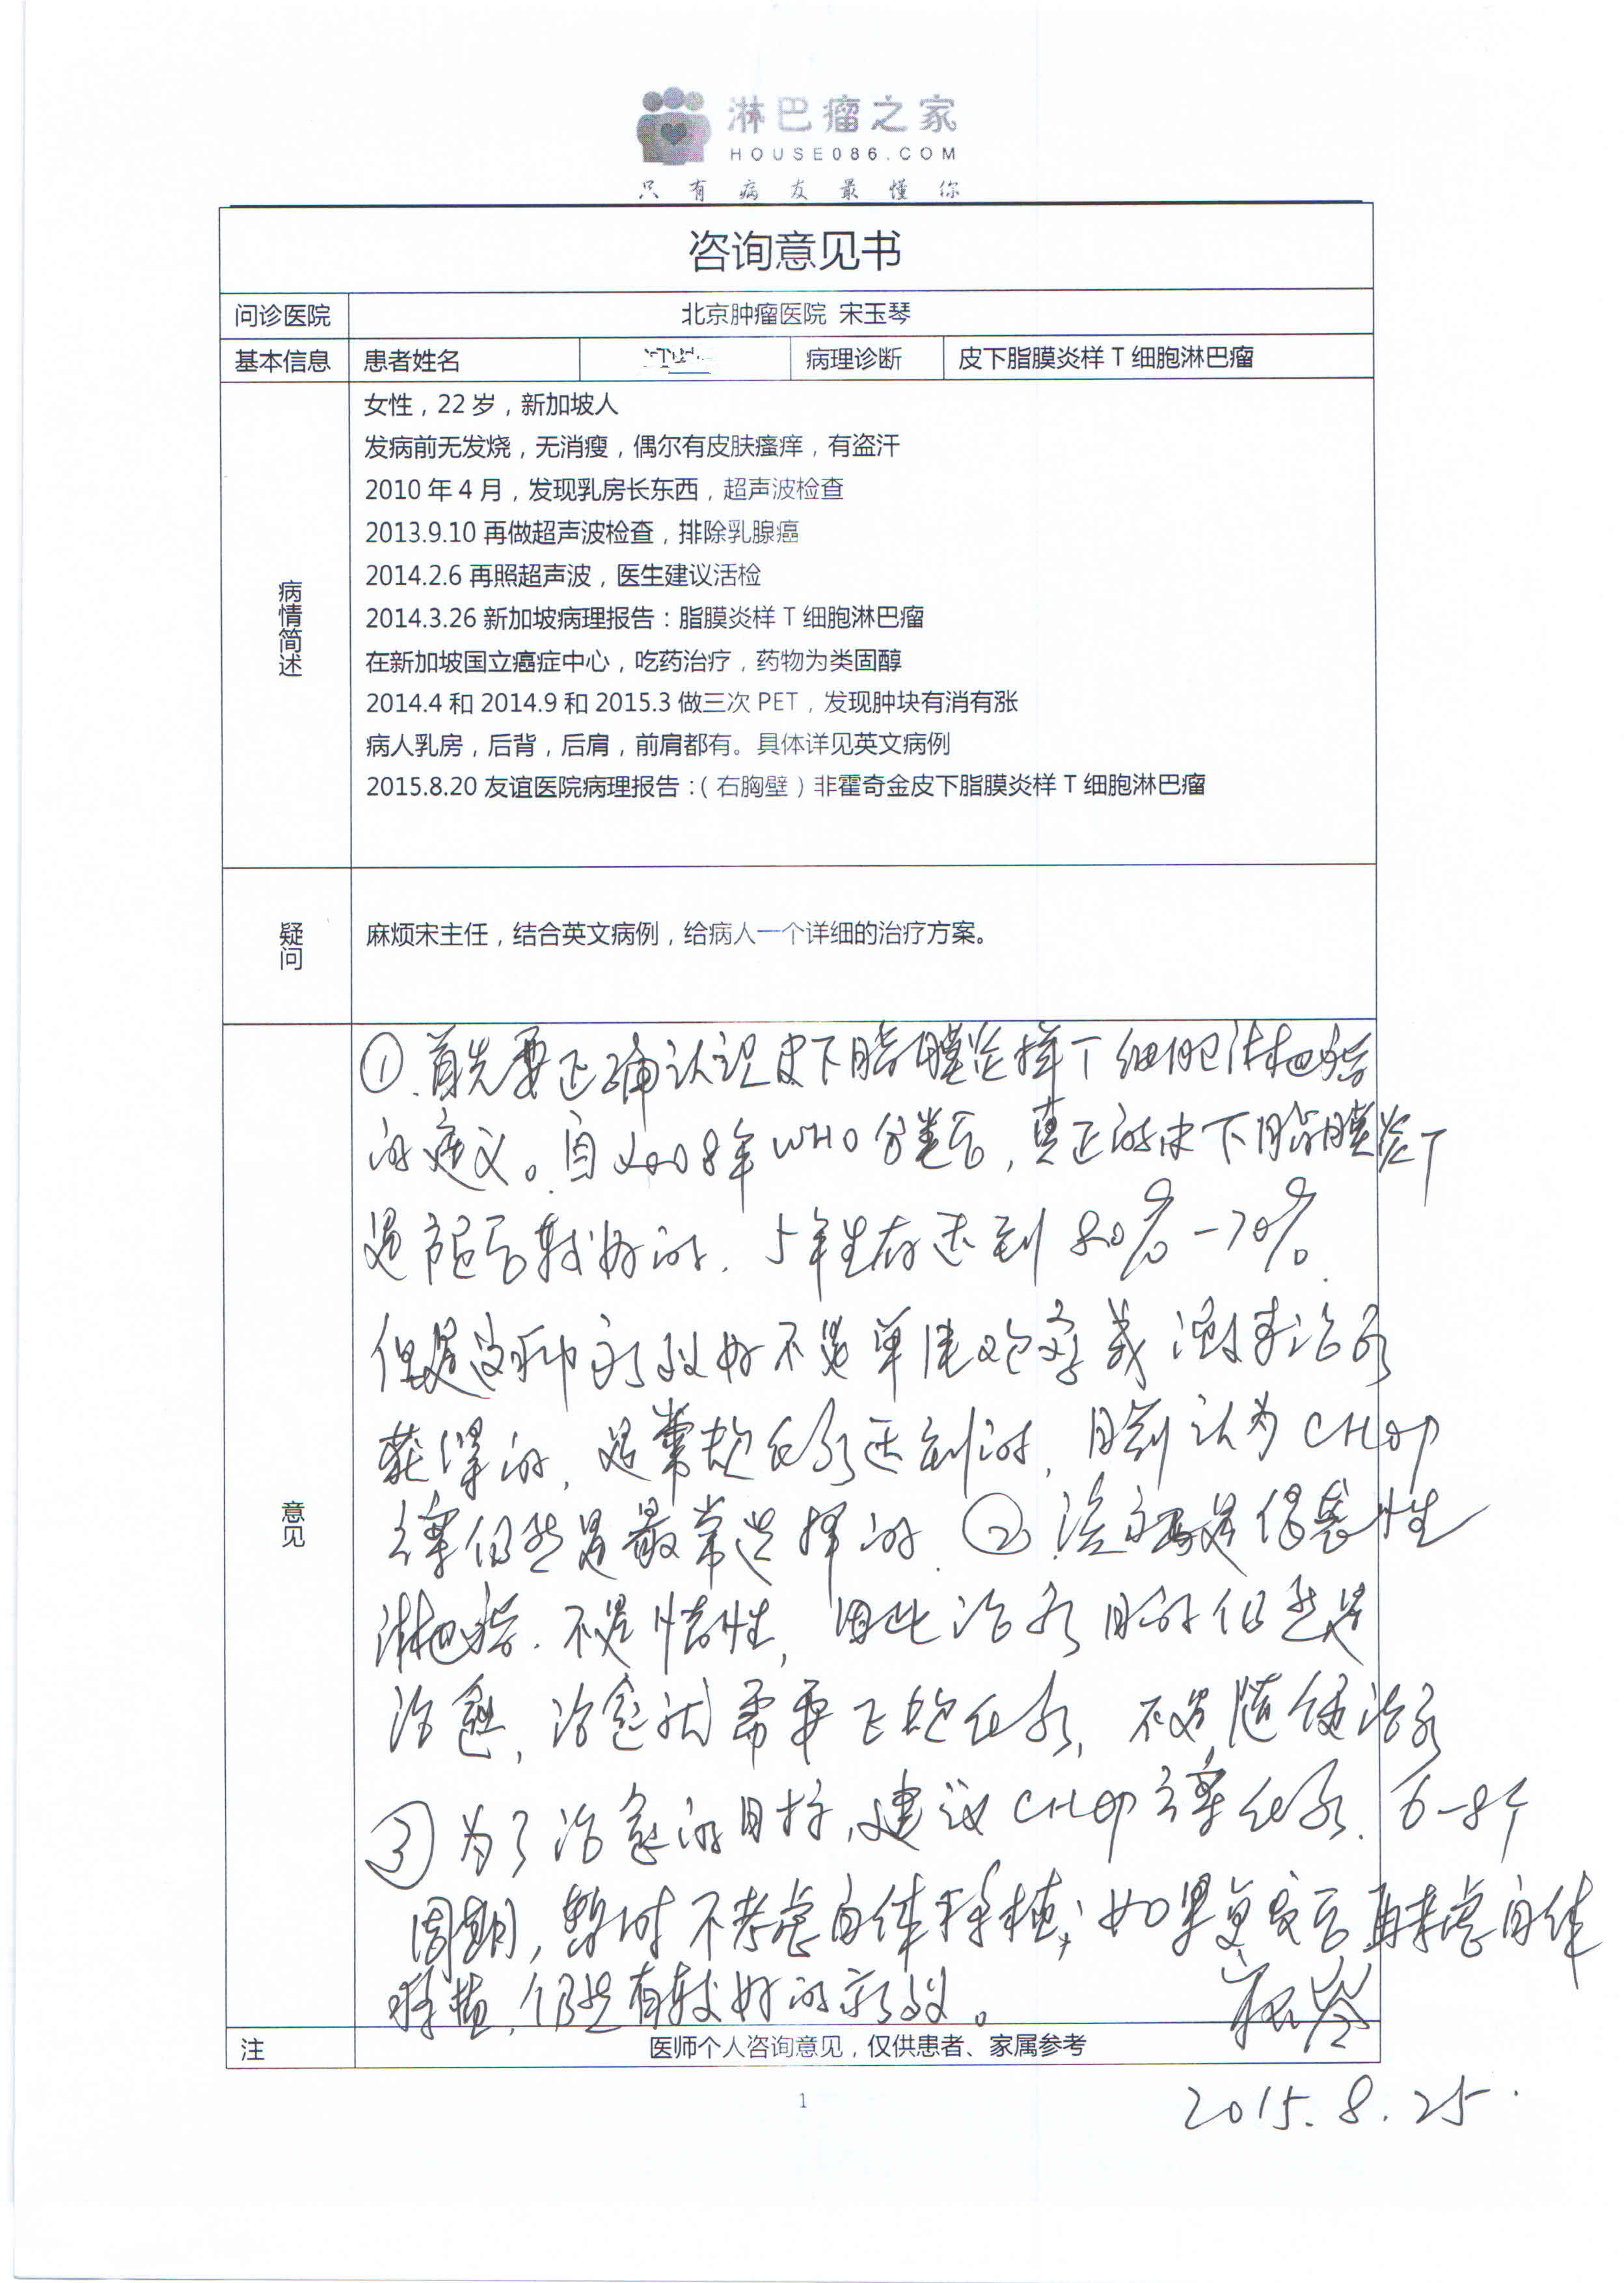 淋巴瘤之家
HOUSE086.COM
只有病友最懂你
咨询意见书
问诊医院 北京肿瘤医院 宋玉琴
基本信息 患者姓名 病理诊断 皮下脂膜炎样 T 细胞淋巴瘤
病情简述
女性，22 岁，新加坡人
发病前无发烧，无消瘦，偶尔有皮肤瘙痒，有盗汗
2010 年 4 月，发现乳房长东西，超声波检查
2013.9.10 再做超声波检查，排除乳腺癌
2014.2.6 再照超声波，医生建议活检
2014.3.26 新加坡病理报告：脂膜炎样 T 细胞淋巴瘤
在新加坡国立癌症中心，吃药治疗，药物为类固醇
2014.4 和 2014.9 和 2015.3 做三次 PET，发现肿块有消有涨
病人乳房，后背，后肩，前肩都有。具体详见英文病例
2015.8.20 友谊医院病理报告：（右胸壁）非霍奇金皮下脂膜炎样 T 细胞淋巴瘤
疑问
麻烦宋主任，结合英文病例，给病人一个详细的治疗方案。
意见
①.首先要正确认识皮下脂膜炎样T细胞淋巴瘤
的定义。自2008年WHO分类后，真正的皮下脂膜炎T
是预后较好的．5年生存达到80%-70%．
但是这种疗效好不是单纯观察或激素治疗
获得的，是常规化疗达到的，目前认为CHOP
方案仍然是最常选择的．②．该病是侵袭性
淋巴瘤．不是惰性，因此治疗目的仍然是
治愈，治愈就需要正规化疗，不是随便治疗
③为了治愈的目标，建议CHOP方案化疗．6-8个
周期，暂时不考虑自体移植；如果复发后再考虑自体
移植，仍然有较好的疗效。 宋玉琴
注 医师个人咨询意见，仅供患者、家属参考
1
2015.8.25.